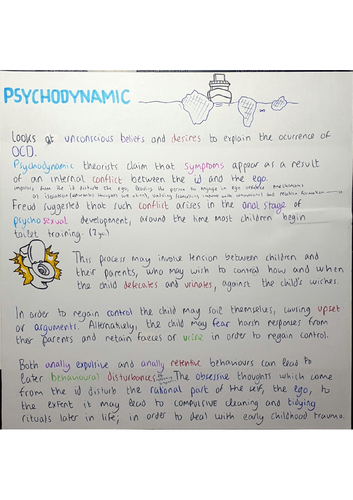 PSYCHODYNAMIC
Looks at unconscious beliefs and desires to explain the ocurrence of
OCD.
Psychodynamic theorists claim that symptoms appear as a result
of an internal conflict between the id and the ego.
impulses from the id disturb the ego, leading the person to engage in ego defence mechanisms
Freud suggested that such conflict arises in the anal stage of
psychosexual development, around the time most children begin
toilet training. (2yrs)
This process may involve tension between children and
their parents, who may wish to control how and when
the child defecates and urinates, against the child's wishes.
In order to regain control the child may soil themselves, causing upset
or arguments. Alternatively, the child may fear harsh responses from
their parents and retain faeces or urine in order to regain control.
Both anally expulsive and anally retentive behaviours can lead to
later behavioural disturbances. The obsessive thoughts which come
from the id disturb the rational part of the self, the ego, to
the extent it may lead to COMPULSIVE cleaning and tidying
rituals later in life; in order to deal with early childhood trauma.